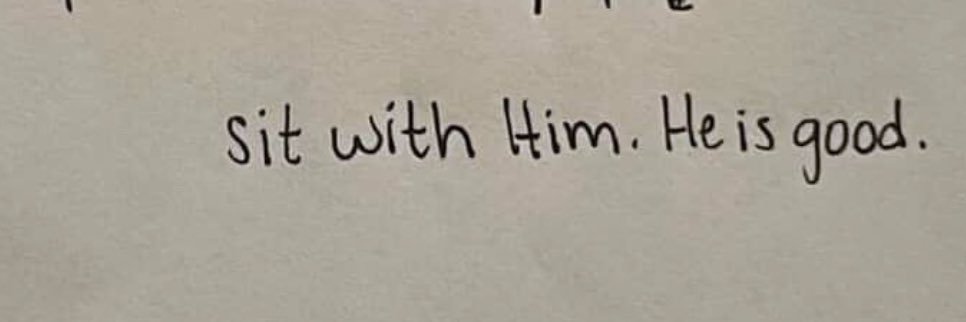 sit with Him. He is good.